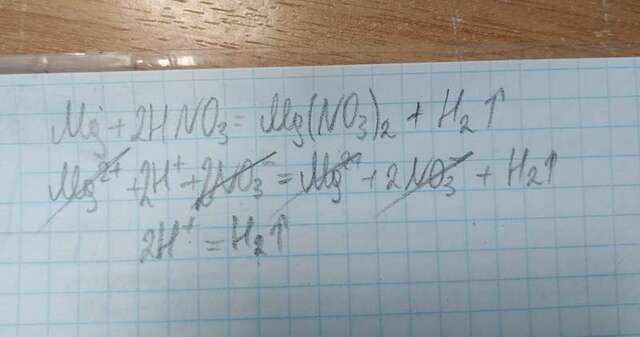 Mg + 2HNO₃ = Mg(NO₃)₂ + H₂↑
Mg²⁺ + 2H⁺ + 2NO₃⁻ = Mg²⁺ + 2NO₃⁻ + H₂↑
2H⁺ = H₂↑